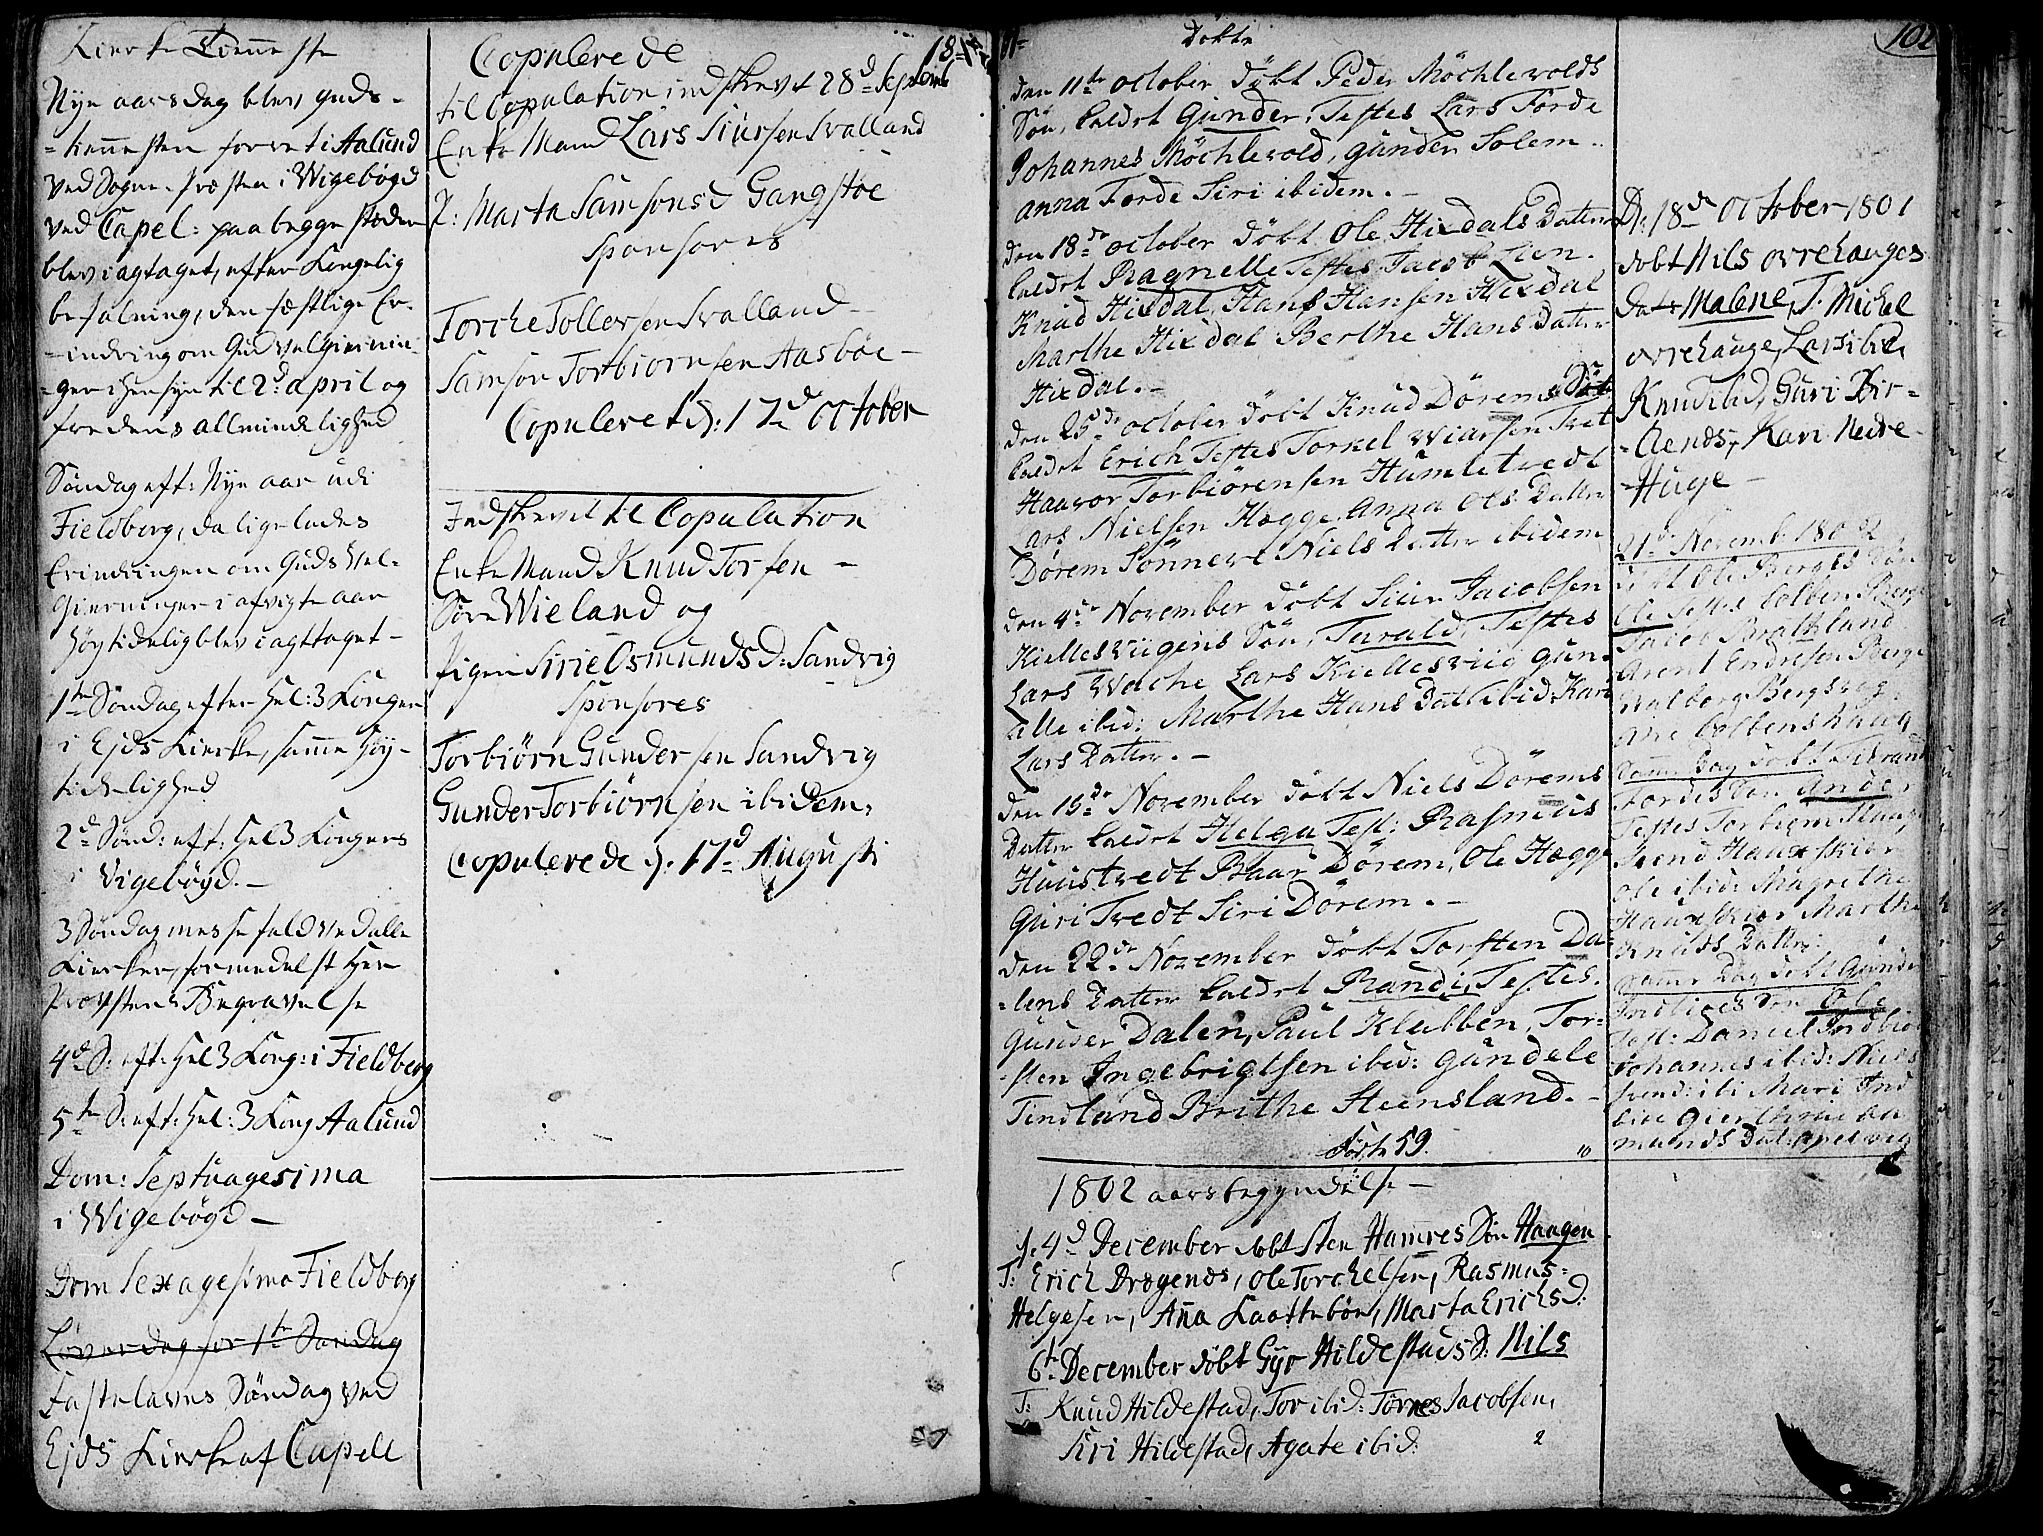 Kierke Tienneste
Nye aarsdag blev guds-
-tiennesten forret i Aalund
ved Sogne-Præsten i Wigebøgd
ved Capel: paa begge steder
blev iagtaget, efter Kongelig
befalning, den festlige Er-
-indring om Guds velgiernin-
-ger i hensyn til 2d april og
fredens allmindelighed
Søndag eft: Nye aar udi
Fieldberg, da ligeledes
Erindringen om Guds vel-
gierninger i afvigte aar
høytidelig blev iagttaget-
1te Søndag efter Hel: 3 Konger
i Ejds Kierke, samme Høy-
tidelighed
2d Sønd: eft: Hel 3 Kongers
i Vigebøyd.-
3 Søndag messefald ved alle
Kierker, formedelst Her
Provstens Begravelse
4d S: eft: Hel 3 Kong: i Fieldberg
5te S: eft: Hel: 3 Kong Aalund
Dom: Septuagesima
i Wigebøgd-
Dom Sexagesima Fieldberg
Løverdag for 1te Søndag
Fastelavns Søndag ved
Ejds Kierke af Capell
Copulerede
til Copulation indskrevet 28d Septemb
Enke Mand Lars Siursen Svalland
P: Marta Samsons d Gangstøe
Sponsores
Torche Tollevsen Svalland-
Samson Torbiørnsen Aasbøe-
Copuleret d: 17d October
Indskrevet til Copulation
Enke Mand Knud Torsen-
Søre Wieland og
Pigen Sirie Osmunds D: Sandvig
Sponsores
Torbiørn Gundersen Sandvig
Gunder Torbiørnsen ibidem,
Copulerede d: 17d Augusti
Døbte
101
den 11te October døbt Peder Møchlevolds
Søn, kaldet Gunder, Testes Lars Førde
Johannes Møchlevold, Gunder Solem..
Anna Førde Siri ibidem.-
den 18de October døbt Ole Hixdals Datter
kaldet Ragnelle Testes Jacob Lien.
Knud Hixdal, Hans Hansen Hixdal
Marthe Hixdal Berthe Hans Datter
Hixdal.-
den 25de October døbt Knud Dørems Søn
kaldet Erich, Testes Torkel Wiarsen Tvet
Haavor Torbiørensen Humletvedt
Lars Nielsen Hægge. Anna Ols Datter
Dørem Sønneve Niels Datter ibidem
den 4de November døbt Siur Jacobsen
Kiellesviigens Søn, Tarald, Testes
Lars Wache Lars Kiellesviig Gun-
ille ibid: Marthe Hans Dat: ibid: Kari
Lars Datter.-
den 15de November døbt Niels Dørems
Datter kaldet Helga Test: Rasmus
Huustvedt Baar Dørem, Ole Hægge
Guri Tvedt Siri Dørem.-
den 22de November døbt Torsten Da-
-lens Datter kaldet Randi, Testes.
Gunder Dalen, Paul Klubben, Tor-
-sten Ingebrigtsen ibid: Gundele
Tindland Brithe Steensland.-
født 59.
1802 aars begyndelse-
d: 4d December døbt Sten Hamres Søn Haagen
T: Erich Drøgends, Ole Torchelsen, Rasmus
Helgesen, Anna Laattebøe, Marta Erichs d:
6te December døbt Gyr Hildestads S. Nils
T: Knud Hildestad, Tor ibid: Tørres Jacobsen,
Siri Hildestad, Agate ibid: 2
D: 18de October 1801
døbt Nils Ovrehauges
dat: Malene, T. Michel
Ovrehauge, Lars ibid,
Knud ibid, Guri Bir-
-Kari Nedre-
-Huge-
21de Novemb 180
døbt Ole Berges Søn
Ole Testes Colben Berge
Jacob
Arent Endresen Berge
Walborg
Samme Dag døbt
Førdes Søn
Testes Torbiørn Hauge
Ole ibid: Magrethe
Marthe
Knuds Datter:
Samme Dag døbt Gunder
Søn Ole
Test: Daniel
Johannes ibid: Niels